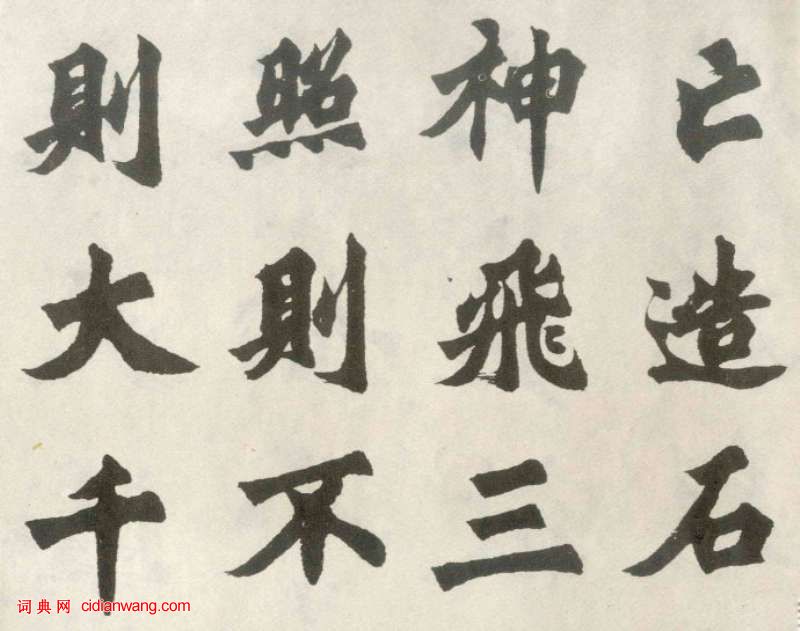 亡造石
神飛三
照則不
則大千
词典网 cidianwang.com